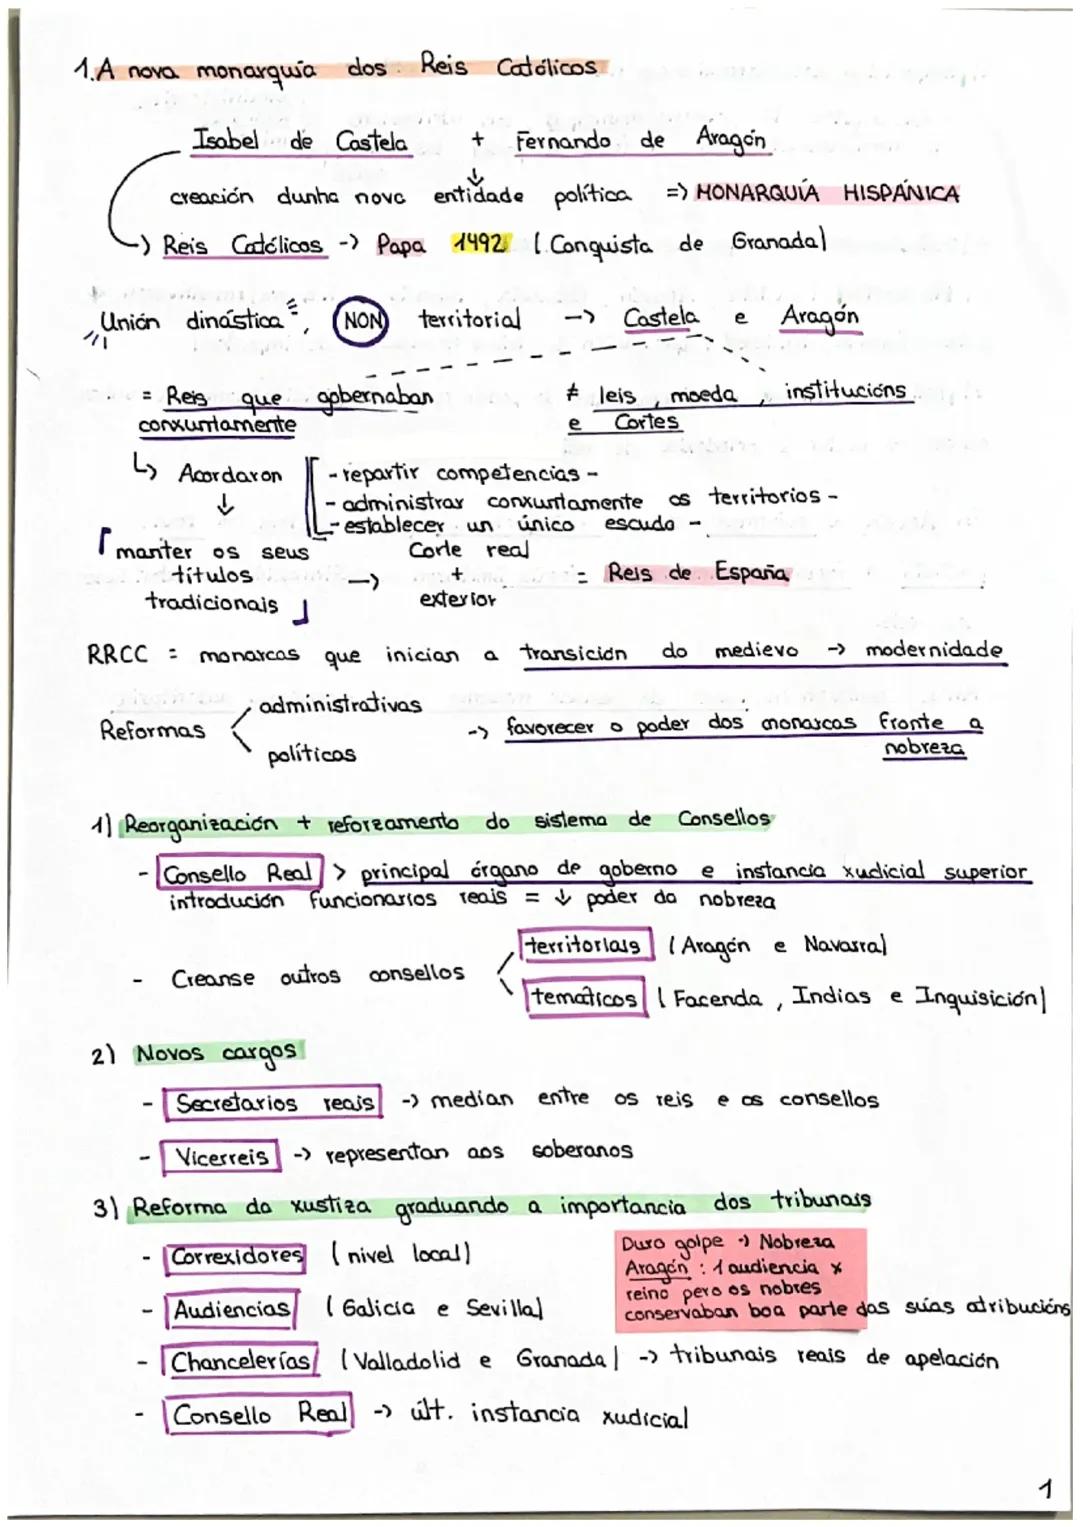 1. A nova monarquía dos Reis Católicos
Isabel de Castela + Fernando de Aragón
↓
creación dunha nova entidade política => MONARQUÍA HISPÁNICA
-> Reis Católicos -> Papa 1492 (Conquista de Granada)
"Unión dinástica", NON territorial -> Castela e Aragón
= Reis que gobernaban conxuntamente
≠ leis, moeda, institucións e Cortes
↳ Acordaron
- repartir competencias -
- administrar conxuntamente os territorios -
- establecer un único escudo -
↓
manter os seus títulos tradicionais -> Corte real + exterior = Reis de España
RRCC = monarcas que inician a transición do medievo -> modernidade
Reformas < administrativas
políticas
-> favorecer o poder dos monarcas fronte a nobreza
1) Reorganización + reforzamento do sistema de Consellos
- Consello Real > principal órgano de goberno e instancia xudicial superior
introdución funcionarios reais = ↓ poder da nobreza
- Creanse outros consellos < territoriais (Aragón e Navarra)
temáticos (Facenda, Indias e Inquisición)
2) Novos cargos
- Secretarios reais -> median entre os reis e os consellos
- Vicerreis -> representan aos soberanos
3) Reforma da xustiza graduando a importancia dos tribunais
- Correxidores (nivel local)
- Audiencias (Galicia e Sevilla)
Duro golpe -> Nobreza
Aragón: 1 audiencia x
reino pero os nobres
conservaban boa parte das súas atribucións
- Chancelerías (Valladolid e Granada) -> tribunais reais de apelación
- Consello Real -> últ. instancia xudicial
1